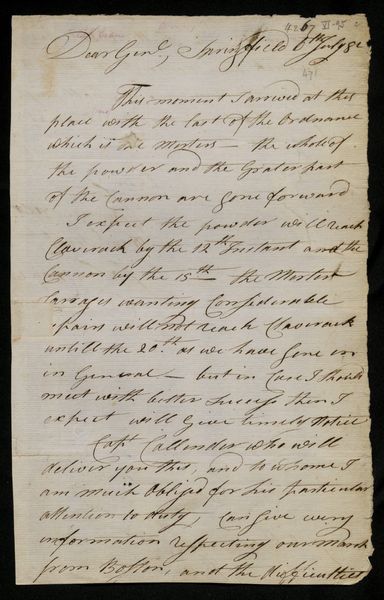 Dear Genl, Springfield 6th July 82
471
This moment I arrived at this
place with the last of the Ordnance
which is one Morters — the whole of
the powder and the Grater part
of the Cannon are gone forward
I expect the powder will reach
Claverack by the 12th Instant and the
Cannon by the 15th — the Morter
Carages wanting Considerable
repairs will not reach Claverack
untill the 20th as we have gone on
in General — but in Case I should
meet with better success then I
expect will Give timely Notice
Capt Callender who will
deliver you this, and to whome I
am much Obliged for his particular
attention to duty, can give every
information respecting our March
from Boston, and the difficulties